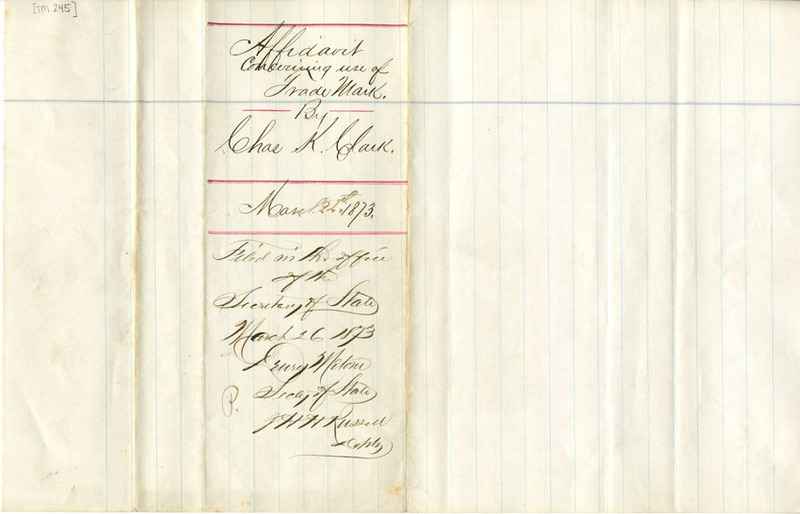 [TM 245]
Affidavit
Concerning use of
Trade Mark.
By
Chas K. Clark.
March 1873.
Filed in the office
of the
Secretary of State
March 26 1873
Drury Melone
Secy of State
P.
J H H Russell
Depty